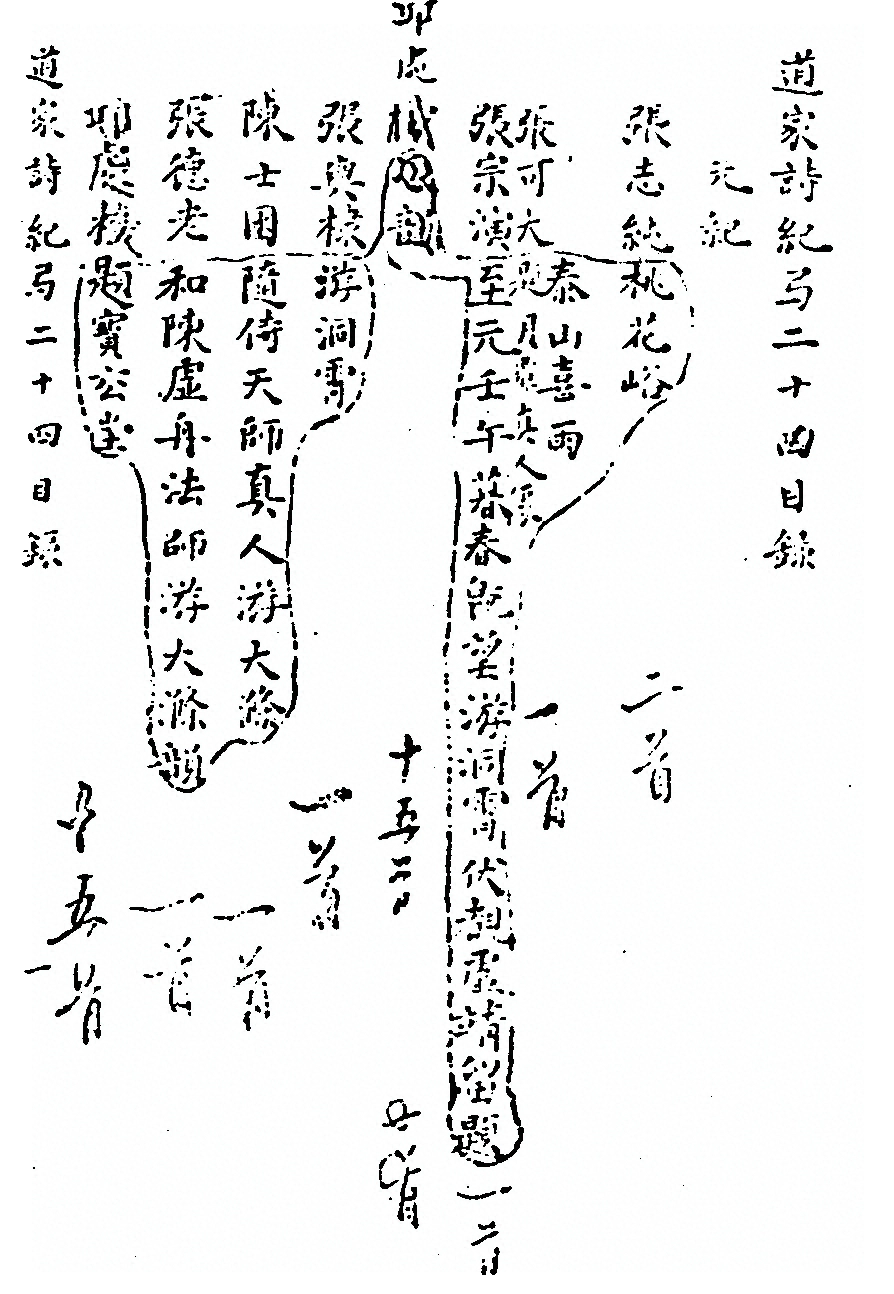 道家詩紀号二十四目錄
元紀
張志純桃花峪
泰山喜雨
二首
張可大題真人
一首
張宗演至元壬午暮春既望游洞霄伏覩虛靖留題
一首
邱處機
十五首
廿首
張與棣游洞霄
一首
陳士困隨侍天師真人游大滌
一首
張德光和陳虛舟法師游大滌韻
一首
邱處機題寶公塔
五首
道家詩紀号二十四目錄